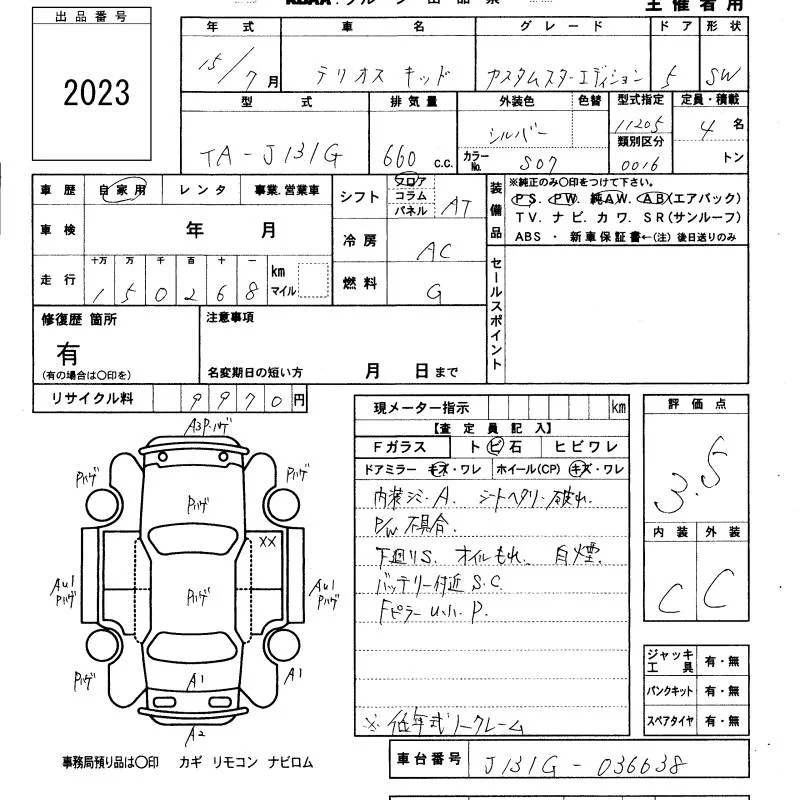 出品番号
2023
主催者用
年式 車名 グレード ドア 形状
15/7月 テリオスキッド カスタムスターエディション 5 SW
型式 排気量 外装色 色替 型式指定 定員・積載
TA-J131G 660 c.c. シルバー 11205 4名
類別区分
カラーNo. S07 0016 トン
車歴 自家用 レンタ 事業.営業車
シフト フロア コラム パネル AT
装備品
※純正のみ〇印をつけて下さい。
PS. PW. 純AW. AB(エアバック)
TV. ナビ. カワ. SR(サンルーフ)
ABS ・ 新車保証書←(注) 後日送りのみ
車検 年 月
冷房 AC
走行 十万 万 千 百 十 一
150268 km マイル
燃料 G
セールスポイント
修復歴 箇所
有
(有の場合は〇印を)
注意事項
名変期日の短い方 月 日まで
リサイクル料 9970円
現メーター指示 km
【査定員記入】
Fガラス トビ石 ヒビワレ
ドアミラー キズ・ワレ ホイール(CP) キズ・ワレ
内装シミ・A. シートヘタリ・破れ.
P/W 不具合.
下廻りS. オイルもれ. 白煙.
バッテリー付近 S.C.
Fピラー U.小 P.
※低年式ノークレーム
評価点
3.5
内装 外装
C C
ジャッキ工具 有・無
パンクキット 有・無
スペアタイヤ 有・無
A3P.ハゲ
Pハゲ Pハゲ
Pハゲ
XX
AU1 Pハゲ Pハゲ AU1 Pハゲ
Pハゲ A1 A1
A2
事務局預り品は〇印 カギ リモコン ナビロム
車台番号 J131G-036638